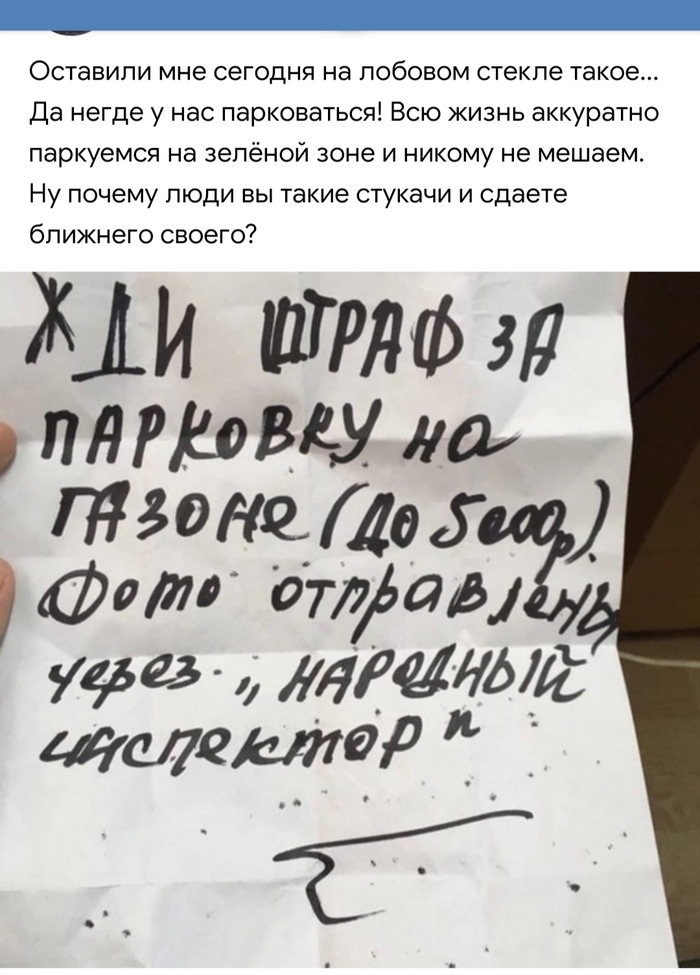 Оставили мне сегодня на лобовом стекле такое...
Да негде у нас парковаться! Всю жизнь аккуратно
паркуемся на зелёной зоне и никому не мешаем.
Ну почему люди вы такие стукачи и сдаете
ближнего своего?
ЖДИ ШТРАФ ЗА
ПАРКОВКУ НА
ГАЗОНЕ (ДО 5000р)
Фото отправлены
через „НАРОДНЫЙ
инспектор"